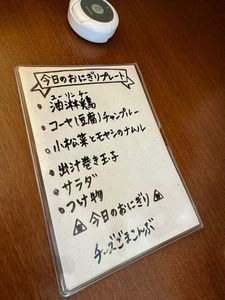 今日のおにぎりプレート
ユーリンチー
・油淋鶏
・ゴーヤ(豆腐)チャンプルー
・小松菜とモヤシのナムル
・出汁巻き玉子
・サラダ
・つけ物
🍙今日のおにぎり🍙
チーズごまこんぶ